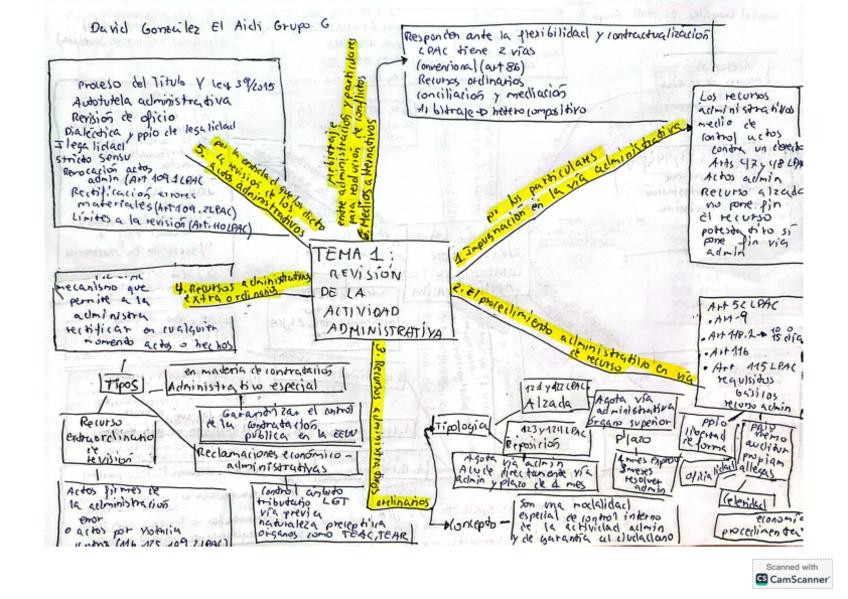 David González El Aidi Grupo G
Proceso del Título V Ley 39/2015
Autotutela administrativa
Revisión de oficio
Dialéctica y ppio de legalidad
Ilegalidad
stricto sensu
Revocación actos
admin (Art 109.1 LPAC
Rectificación errores
materiales (Art 109.2 LPAC)
Límites a la revisión (Art. 110 LPAC)
5. por la entidad que los dictó
de revisión de los
actos administrativos
Arbitraje
entre administración y particulares
para resolución de conflictos
6. Medios alternativos
Responden ante la flexibilidad y contractualización
LPAC tiene 2 vías
Convencional (art 86)
Recursos ordinarios
conciliación y mediación
Arbitraje → heterocompositivo
por los particulares
1. Impugnación en la vía administrativa
Los recursos
administrativos
medio de
control actos
contra un
Arts 47 y 48 LPA
Actos admin
Recurso alzada
no pone fin
El recurso
potestativo si
pone fin vía
admin
TEMA 1:
REVISIÓN
DE LA
ACTIVIDAD
ADMINISTRATIVA
4. Recursos administrativos
extraordinarios
mecanismo que
permite a la
administra
rectificar en cualquier
momento actos o hechos
2. El procedimiento administrativo en vía
de recurso
Art 5 LPAC
• Art 9
• Art 118.2 → 10 o
15 día
• Art 116
• Art 115 LPAC
requisitos
básicos
recurso admin
3. Recursos administrativos
ordinarios
Tipos
en materia de contratación
Administrativo especial
Garantizar el control
de la contratación
pública en la EELL
Recurso
extraordinario
de revisión
Reclamaciones económico-
administrativas
Actos firmes de
la administración
error
o actos por violencia
Control ámbito
tributario LGT
vía previa
naturaleza preceptiva
órganos como TEAC, TEAR
Tipología
121 y 122 LPAC
Alzada
123 y 124 LPAC
Reposición
Agota vía
administrativa
órgano superior
Plazo
Agota vía admin
Acude directamente vía
admin y plazo de 1 mes
3 meses
resolver
admin
ppio
libertad
de forma
oficialidad
ppio
nemo
auditur
propiam
allegans
Celeridad
economía
procedimental
Concepto
Son una modalidad
especial de control interno
de la actividad admin
y de garantía al ciudadano
Scanned with
CS CamScanner